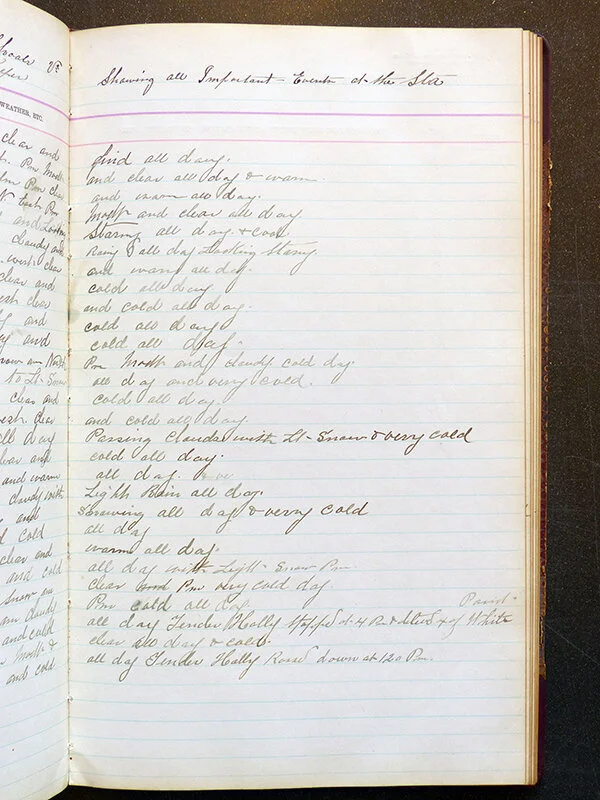 Shoals Va
Keeper
WEATHER, ETC.
clear and
Pm North
Pm clear
East Pm
and Looking
cloudy and
with clear
clear and
fresh clear
and
and
North
to Lt. Snow
clear and
fresh clear
all day
clear and
and warm
cloudy with
and
cold
clear and
and cold
Snow an
am cloudy
and cold
North &
and cold
Showing all Important Events at the Sta
find all day.
and clear all day & warm.
and warm all day.
North and clear all day
Starmy all day. & cool
Rainy all day Looking Starmy
and warm all day.
cold all day
and cold all day.
cold all day
cold all day.
Pm North and cloudy cold day.
all day and very cold.
cold all day.
and cold all day.
Passing clouds with Lt. Snow & very cold
cold all day.
all day.
Light Rain all day.
Snowing all day & verry cold
all day
warm all day.
all day with Light Snow Pm.
clear and Pm very cold day
Pm cold all day.
all day Tender Holly stopped at 4 Pm & White Point
clear all day & cold.
all day Tender Holly Passed down at 120 Pm.